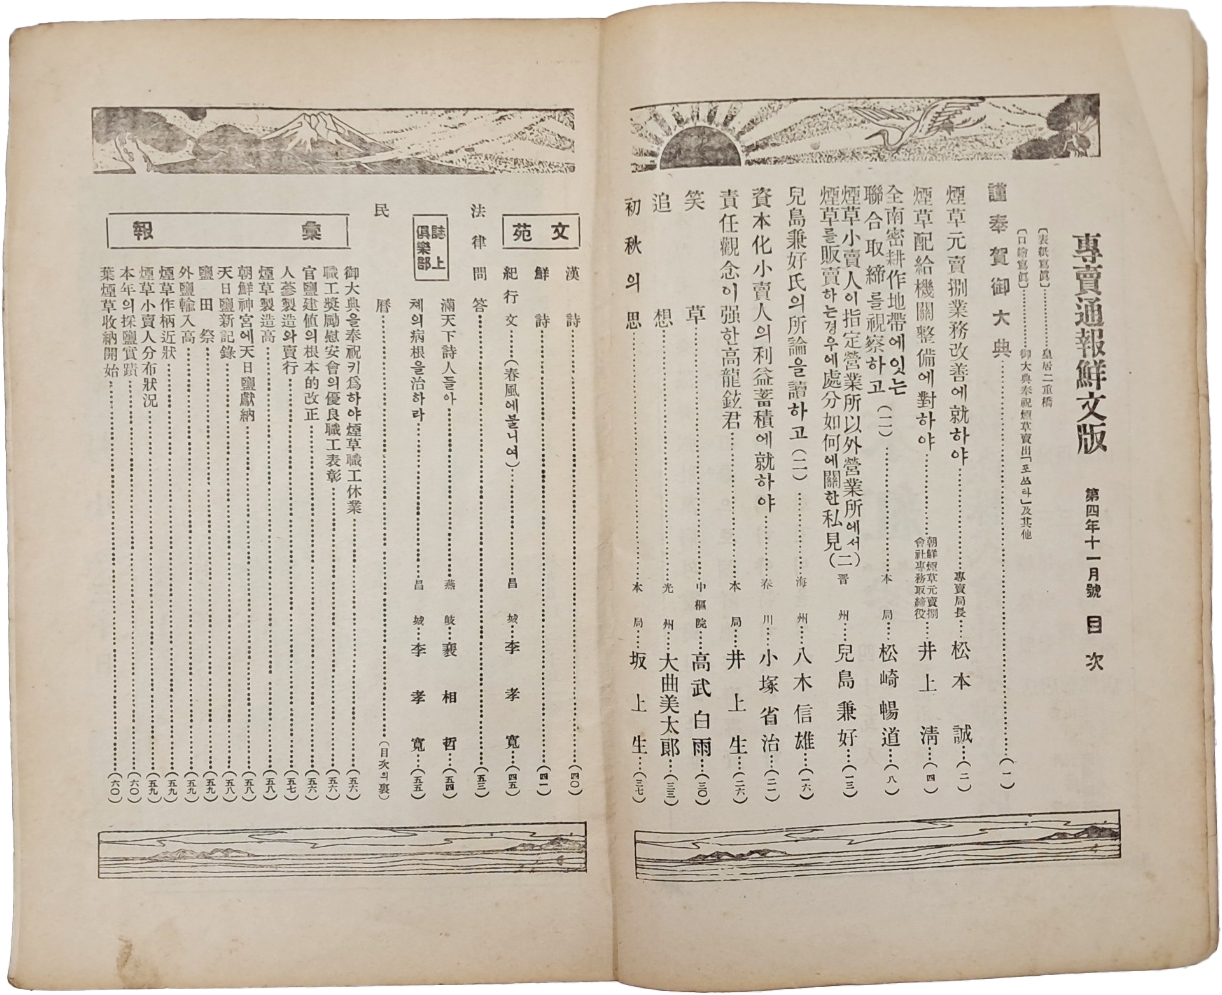 專賣通報鮮文版 第四年十一月號 目次
(表紙寫眞)………皇居二重橋
(口繪寫眞)………御大典奉祝煙草賣出「포쓰타」及其他
謹奉賀御大典………(一)
煙草元賣捌業務改善에就하야………專賣局長…松本誠…(二)
煙草配給機關整備에對하야………朝鮮煙草元賣捌會社專務取締役…井上淸…(四)
全南密耕作地帶에잇는
聯合取締를視察하고(二)………本局…松崎暢道…(八)
煙草小賣人이指定營業所以外營業所에서
煙草를販賣하는경우에處分如何에關한私見(二)晋州…兒島兼好…(一三)
兒島兼好氏의所論을讀하고(二)………海州…八木信雄…(一六)
資本化小賣人의利益蓄積에就하야………春川…小塚省治…(二二)
責任觀念이强한高龍鉉君………本局…井上生…(二六)
笑草………中樞院…高武白雨…(三〇)
追想………光州…大曲美太郞…(三三)
初秋의思………本局…坂上生…(三七)
文苑
漢詩………(四〇)
鮮詩………(四一)
紀行文……(春風에불니여)………昌城…李孝寬…(四五)
法律問答………(五三)
誌上俱樂部
滿天下詩人들아………燕岐…裵相哲…(五四)
제의病根을治하라………昌城…李孝寬…(五五)
民曆………(目次의裏)
彙報
御大典을奉祝키爲하야煙草職工休業………(五六)
職工奬勵慰安會의優良職工表彰………(五六)
官鹽建値의根本的改正………(五六)
人蔘製造와賣行………(五七)
煙草製造高………(五八)
朝鮮神宮에天日鹽獻納………(五八)
天日鹽新記錄………(五九)
鹽田祭………(五九)
外鹽輸入高………(五九)
煙草作柄近狀………(五九)
煙草小賣人分布狀況………(五九)
本年의採鹽實蹟………(六〇)
葉煙草收納開始………(六〇)